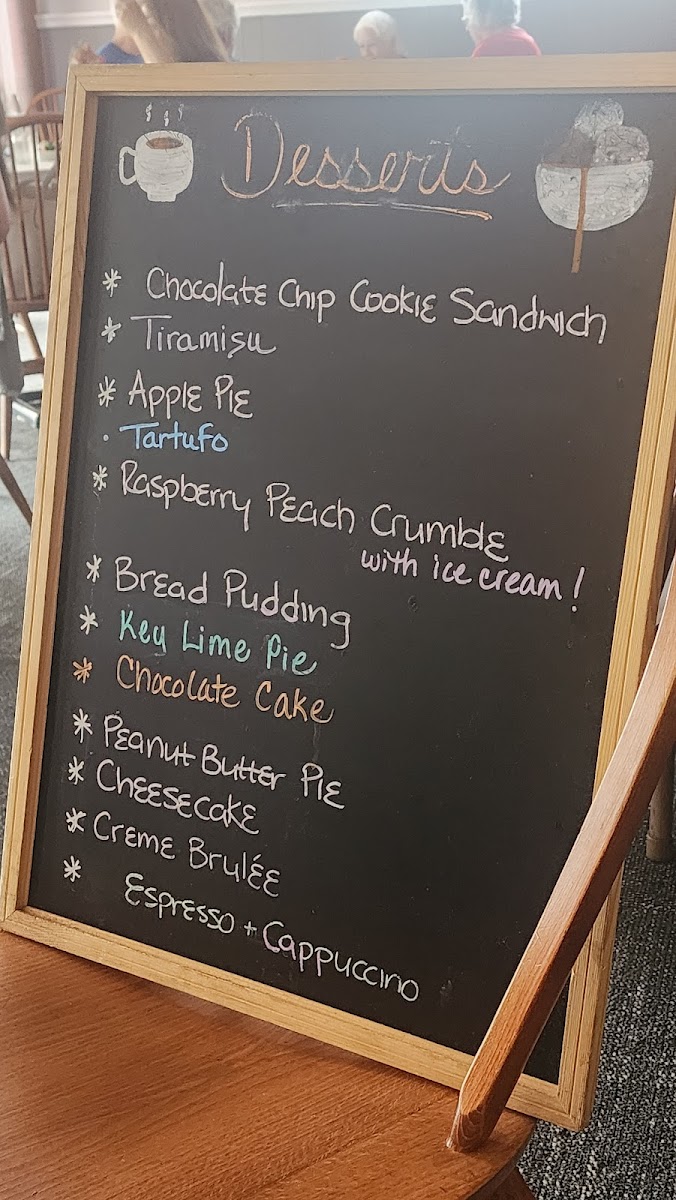 Desserts
* Chocolate Chip Cookie Sandwich
* Tiramisu
* Apple Pie
· Tartufo
* Raspberry Peach Crumble
with ice cream!
* Bread Pudding
* Key Lime Pie
* Chocolate Cake
* Peanut Butter Pie
* Cheesecake
* Creme Brulée
* Espresso + Cappuccino